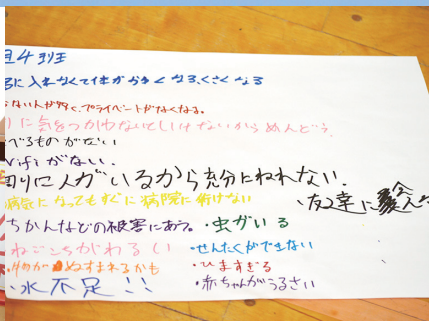 4班
に入れなくて体がかゆくなる、くさくなる
ない人が多く、プライベートがなくなる。
に気をつかわないといけないからめんどう
べるものがない
Wifiがない.
周りに人がいるから充分にねれない.
病気になってもすぐに病院に行けない
・友達に会えない
ちかんなどの被害にあう。・虫がいる
ねごこちがわるい ・せんたくができない
・物がぬすまれるかも ・ひますぎる
水不足!! ・赤ちゃんがうるさい